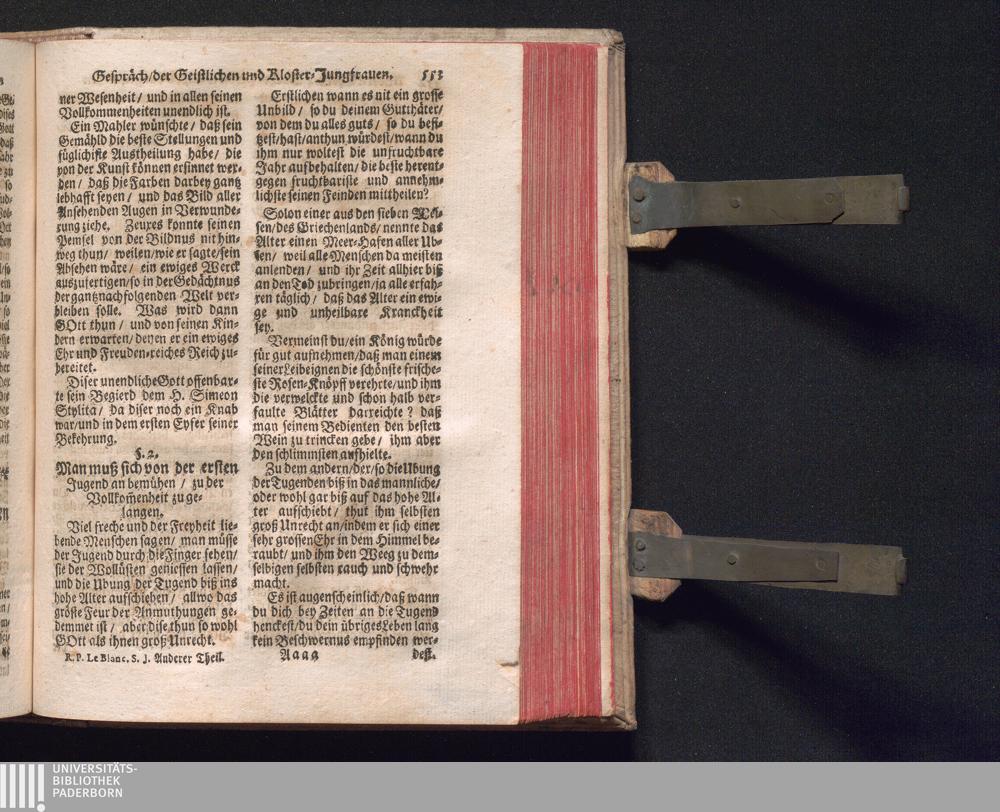 Gespräch/der Geistlichen und Kloster-Jungfrauen. 553
ner Wesenheit/ und in allen seinen
Vollkommenheiten unendlich ist.
Ein Mahler wünschte/ daß sein
Gemähld die beste Stellungen und
füglichiste Austheilung habe/ die
von der Kunst können ersinnet wer-
den/ daß die Farben darbey gantz
lebhafft seyen/ und das Bild aller
Ansehenden Augen in Verwunde-
rung ziehe. Zeuxes konnte seinen
Pemsel von der Bildnus nit hin-
weg thun/ weilen/wie er sagte/sein
Absehen wäre/ ein ewiges Werck
auszufertigen/so in der Gedächtnus
der gantz nachfolgenden Welt ver-
bleiben solle. Was wird dann
GOtt thun/ und von seinen Kin-
dern erwarten/ denen er ein ewiges
Ehr und Freuden-reiches Reich zu-
bereitet.
Diser unendliche Gott offenbar-
te sein Begierd dem H. Simeon
Stylita/ da diser noch ein Knab
war/und in dem ersten Eyfer seiner
Bekehrung.
§. 2.
Man muß sich von der ersten
Jugend an bemühen/ zu der
Vollkom̃enheit zu ge-
langen.
Viel freche und der Freyheit lie-
bende Menschen sagen/ man müsse
der Jugend durch die Finger sehen/
sie der Wollüsten geniessen lassen/
und die Ubung der Tugend biß ins
hohe Alter aufschiehen/ allwo das
gröste Feur der Anmuthungen ge-
demmet ist/ aber dise thun so wohl
GOtt als ihnen groß Unrecht.
R. P. Le Blanc. S. J. Anderer Theil.
Erstlichen wann es nit ein grosse
Unbild/ so du deinem Gutthäter/
von dem du alles guts/ so du besi-
tzest/hast/anthun würdest/wann du
ihm nur woltest die unfruchtbare
Jahr aufbehalten/ die beste herent-
gegen fruchtbariste und annehm-
lichste seinen Feinden mittheilen?
Solon einer aus den sieben Wei-
sen/des Griechenlands/ nennte das
Alter einen Meer-Hafen aller Ub-
len/ weil alle Menschen da meisten
anlenden/ und ihr Zeit allhier biß
an den Tod zubringen/ja alle erfah-
ren täglich/ daß das Alter ein ewi-
ge und unheilbare Kranckheit
sey.
Vermeinst du/ein König würde
für gut aufnehmen/daß man einem
seiner Leibeignen die schönste frische-
ste Rosen-Knöpff verehrte/und ihm
die verwelckte und schon halb ver-
faulte Blätter darreichte? daß
man seinem Bedienten den besten
Wein zu trincken gebe/ ihm aber
den schlimmsten aufhielte.
Zu dem andern/der/so die Ubung
der Tugenden biß in das mannliche/
oder wohl gar biß auf das hohe Al-
ter aufschiebt/ thut ihm selbsten
groß Unrecht an/indem er sich einer
sehr grossen Ehr in dem Himmel be-
raubt/ und ihm den Weeg zu dem-
selbigen selbsten rauch und schwehr
macht.
Es ist augenscheinlich/daß wann
du dich bey Zeiten an die Tugend
henckest/du dein übriges Leben lang
kein Beschwernus empfinden wer-
Aaaa dest.
UNIVERSITÄTS-
BIBLIOTHEK
PADERBORN